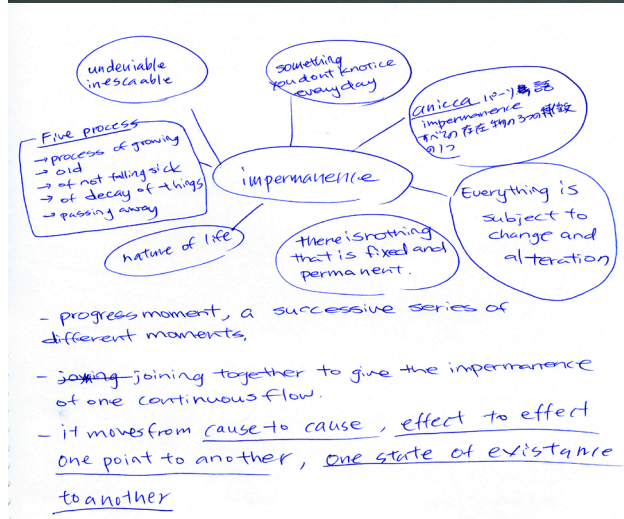 undeniable
inescaable
something
you dont knotice
everyday
anicca パーリ語
impermanence
すべての存在物の3つの特徴
の1つ
Five process
→ process of growing
→ old
→ of not falling sick
→ of decay of things
→ passing away
impermanence
Everything is
subject to
change and
alteration
nature of life
there is nothing
that is fixed and
permanent.
- progress moment, a successive series of
different moments,
- joining together to give the impermanence
of one continuous flow.
- it moves from cause to cause, effect to effect
one point to another, one state of existance
to another